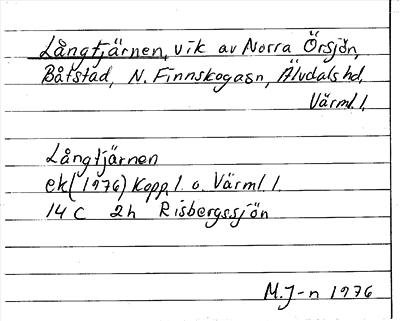 Långtjärnen, vik av Norra Örsjön,
Båtstad, N. Finnskogasn, Älvdals hd,
Värml. l.
Långtjärnen
ek (1976) Kopp. l. o. Värml. l.
14 C 2h Risbergssjön
M.J-n 1976